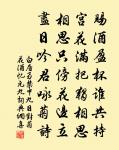 賜酒盈杯誰共持
宮花滿把獨相思
相思只傍花邊立
盡日吟君詠菊詩
白居易禁中九日對菊
花酒憶元九